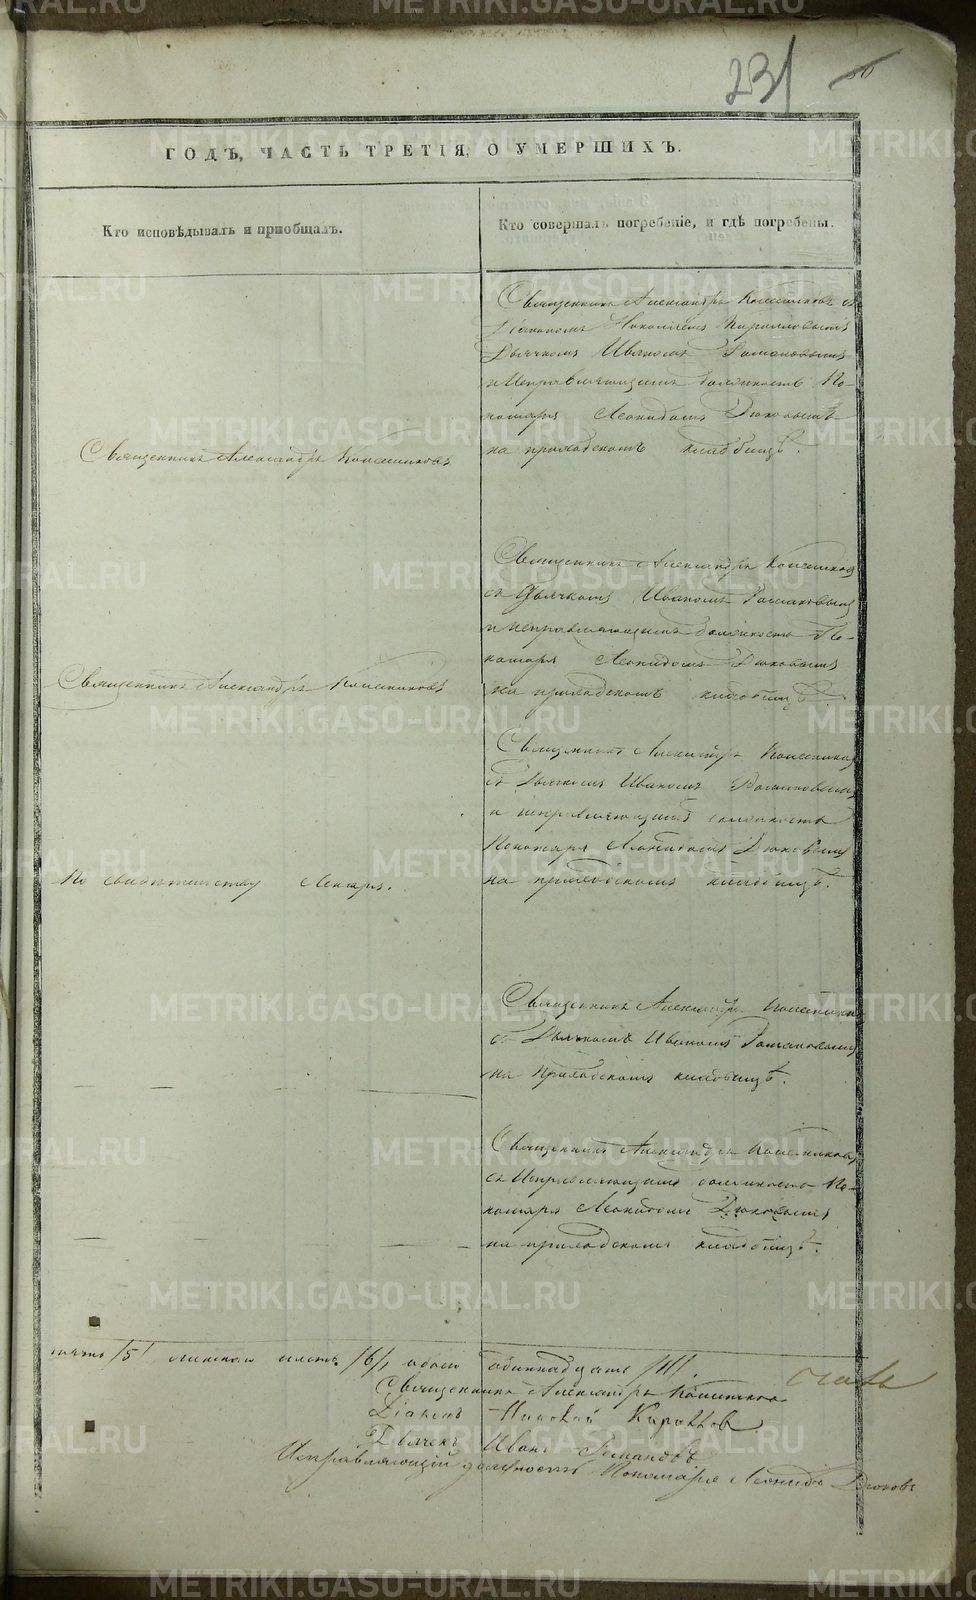 231
ГОДЪ, ЧАСТЬ ТРЕТІЯ, О УМЕРШИХЪ.
Кто исповѣдывалъ и пріобщалъ.
Кто совершалъ погребеніе, и гдѣ погребены.
Священникъ Александръ
Священникъ Александръ
По свидѣтельству Лекаря.
Священникъ Александръ
Діакономъ Николаемъ Кирилловымъ
Дьячкомъ Иваномъ Романовымъ
и Исправляющимъ должность По-
номаря Леонидомъ Дюковымъ
на приходскомъ кладбищѣ.
Священникъ Александръ
съ Дьячкомъ Иваномъ Романовымъ
и исправляющимъ должность По-
номаря Леонидомъ Дюковымъ
на приходскомъ кладбищѣ.
Священникъ Александръ
съ Дьячкомъ Иваномъ Романовымъ
и исправляющимъ должность
Пономаря Леонидомъ Дюковымъ
на приходскомъ кладбищѣ.
Священникъ Александръ
съ Дьячкомъ Иваномъ Романовымъ
на Приходскомъ кладбищѣ.
Священникъ Александръ
съ Исправляющимъ должность По-
номаря Леонидомъ Дюковымъ
на приходскомъ кладбищѣ.
пять /5/ женска шесть /6/, обоего одиннадцать /11/.
Священникъ Александръ
Діаконъ Николай Кирилловъ
Дьячекъ Иванъ Романовъ
Исправляющій должность Пономаря Леонидъ Дюковъ
METRIKI.GASO-URAL.RU